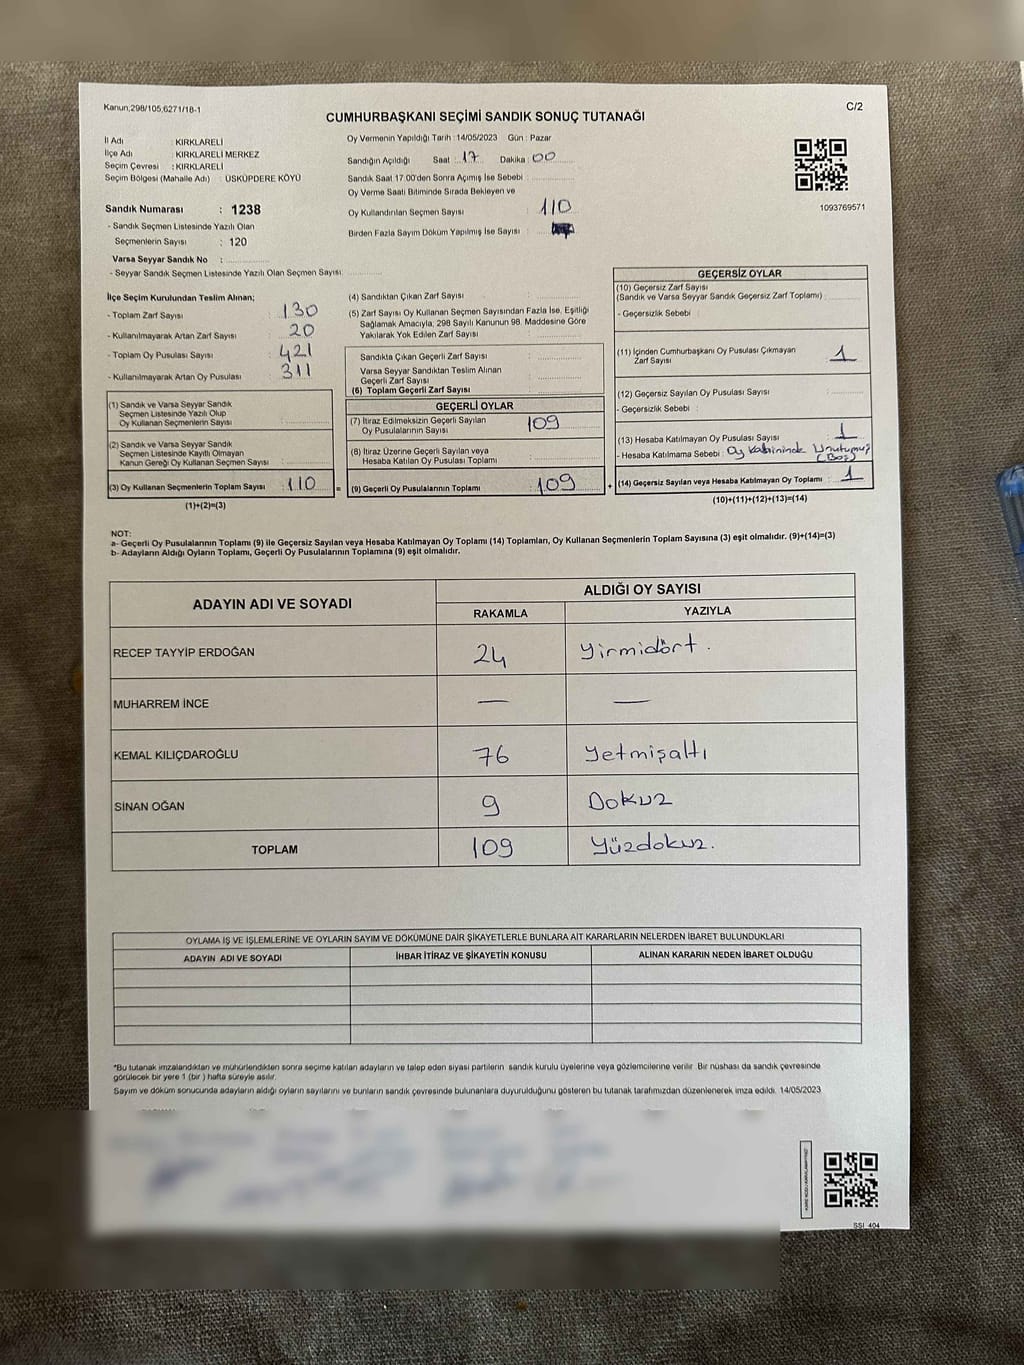 Kanun;298/105,6271/18-1
C/2
CUMHURBAŞKANI SEÇİMİ SANDIK SONUÇ TUTANAĞI
İl Adı : KIRKLARELİ
İlçe Adı : KIRKLARELİ MERKEZ
Seçim Çevresi : KIRKLARELİ
Seçim Bölgesi (Mahalle Adı) : ÜSKÜPDERE KÖYÜ
Sandık Numarası : 1238
- Sandık Seçmen Listesinde Yazılı Olan
Seçmenlerin Sayısı : 120
Varsa Seyyar Sandık No :
- Seyyar Sandık Seçmen Listesinde Yazılı Olan Seçmen Sayısı:
Oy Vermenin Yapıldığı Tarih : 14/05/2023 Gün : Pazar
Sandığın Açıldığı Saat : 17 Dakika : 00
Sandık Saat 17:00'den Sonra Açımış İse Sebebi :
Oy Verme Saati Bitiminde Sırada Bekleyen ve
Oy Kullandırılan Seçmen Sayısı : 110
Birden Fazla Sayım Döküm Yapılmış İse Sayısı :
1093769571
İlçe Seçim Kurulundan Teslim Alınan;
- Toplam Zarf Sayısı : 130
- Kullanılmayarak Artan Zarf Sayısı : 20
- Toplam Oy Pusulası Sayısı : 421
- Kullanılmayarak Artan Oy Pusulası : 311
(1) Sandık ve Varsa Seyyar Sandık
Seçmen Listesinde Yazılı Olup
Oy Kullanan Seçmenlerin Sayısı :
(2) Sandık ve Varsa Seyyar Sandık
Seçmen Listesinde Kayıtlı Olmayan
Kanun Gereği Oy Kullanan Seçmen Sayısı :
(3) Oy Kullanan Seçmenlerin Toplam Sayısı : 110 =
(1)+(2)=(3)
(4) Sandıktan Çıkan Zarf Sayısı :
(5) Zarf Sayısı Oy Kullanan Seçmen Sayısından Fazla İse, Eşitliği
Sağlamak Amacıyla, 298 Sayılı Kanunun 98. Maddesine Göre
Yakılarak Yok Edilen Zarf Sayısı :
Sandıkta Çıkan Geçerli Zarf Sayısı :
Varsa Seyyar Sandıktan Teslim Alınan
Geçerli Zarf Sayısı :
(6) Toplam Geçerli Zarf Sayısı :
GEÇERLİ OYLAR
(7) İtiraz Edilmeksizin Geçerli Sayılan
Oy Pusulalarının Sayısı : 109
(8) İtiraz Üzerine Geçerli Sayılan veya
Hesaba Katılan Oy Pusulası Toplamı :
(9) Geçerli Oy Pusulalarının Toplamı : 109 +
GEÇERSİZ OYLAR
(10) Geçersiz Zarf Sayısı
(Sandık ve Varsa Seyyar Sandık Geçersiz Zarf Toplamı)
- Geçersizlik Sebebi :
(11) İçinden Cumhurbaşkanı Oy Pusulası Çıkmayan
Zarf Sayısı : 1
(12) Geçersiz Sayılan Oy Pusulası Sayısı :
- Geçersizlik Sebebi :
(13) Hesaba Katılmayan Oy Pusulası Sayısı : 1
- Hesaba Katılmama Sebebi : Oy Kabininde Unutumuş
(Boş)
(14) Geçersiz Sayılan veya Hesaba Katılmayan Oy Toplamı : 1
(10)+(11)+(12)+(13)=(14)
NOT:
a- Geçerli Oy Pusulalarının Toplamı (9) ile Geçersiz Sayılan veya Hesaba Katılmayan Oy Toplamı (14) Toplamları, Oy Kullanan Seçmenlerin Toplam Sayısına (3) eşit olmalıdır. (9)+(14)=(3)
b- Adayların Aldığı Oyların Toplamı, Geçerli Oy Pusulalarının Toplamına (9) eşit olmalıdır.
ADAYIN ADI VE SOYADI
ALDIĞI OY SAYISI
RAKAMLA YAZIYLA
RECEP TAYYİP ERDOĞAN 24 Yirmidört.
MUHARREM İNCE — —
KEMAL KILIÇDAROĞLU 76 Yetmişaltı
SİNAN OĞAN 9 Dokuz
TOPLAM 109 Yüzdokuz.
OYLAMA İŞ VE İŞLEMLERİNE VE OYLARIN SAYIM VE DÖKÜMÜNE DAİR ŞİKAYETLERLE BUNLARA AİT KARARLARIN NELERDEN İBARET BULUNDUKLARI
ADAYIN ADI VE SOYADI İHBAR İTİRAZ VE ŞİKAYETİN KONUSU ALINAN KARARIN NEDEN İBARET OLDUĞU
*Bu tutanak imzalandıktan ve mühürlendikten sonra seçime katılan adayların ve talep eden siyasi partilerin sandık kurulu üyelerine veya gözlemcilerine verilir. Bir nüshası da sandık çevresinde
görülecek bir yere 1 (bir ) hafta süreyle asılır.
Sayım ve döküm sonucunda adayların aldığı oyların sayılarını ve bunların sandık çevresinde bulunanlara duyurulduğunu gösteren bu tutanak tarafımızdan düzenlenerek imza edildi. 14/05/2023
SSI_404